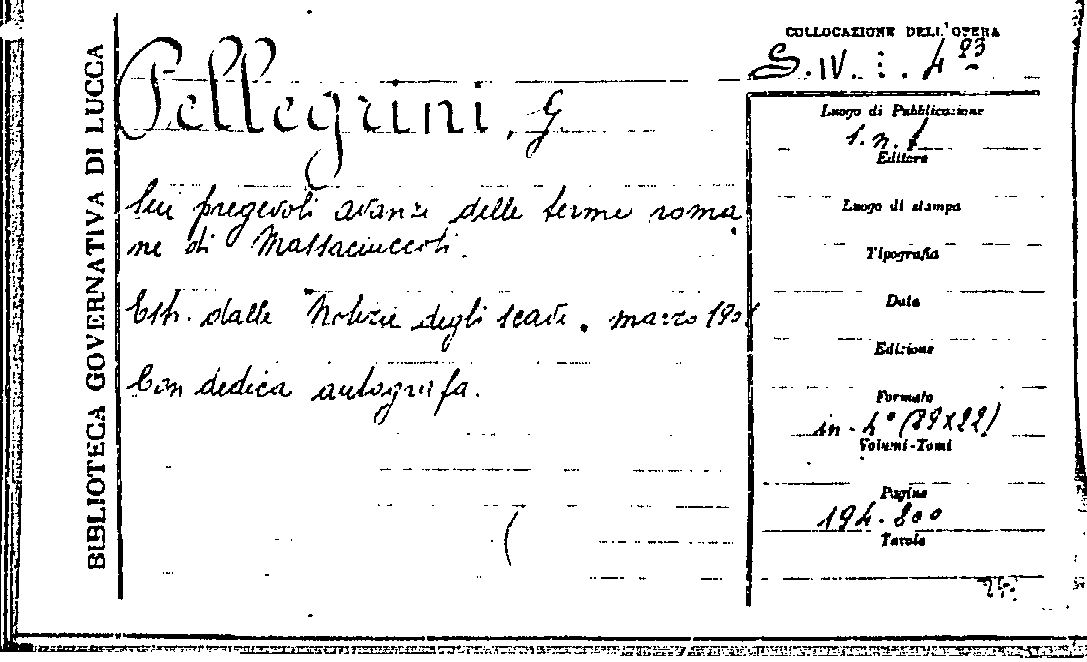 BIBLIOTECA GOVERNATIVA DI LUCCA
Pellegrini, G
Sui pregevoli avanzi delle terme roma
ne di Massaciuccoli.
Estr. dalle Notizie degli scavi. marzo
Con dedica autografa.
COLLOCAZIONE DELL'OPERA
S. IV. : . 4 93
Luogo di Pubblicazione
s. n. t
Editore
Luogo di stampa
Tipografia
Data
Edizione
Formato
in - 4° (29x22)
Volumi-Tomi
Pagine
194. 200
Tavole